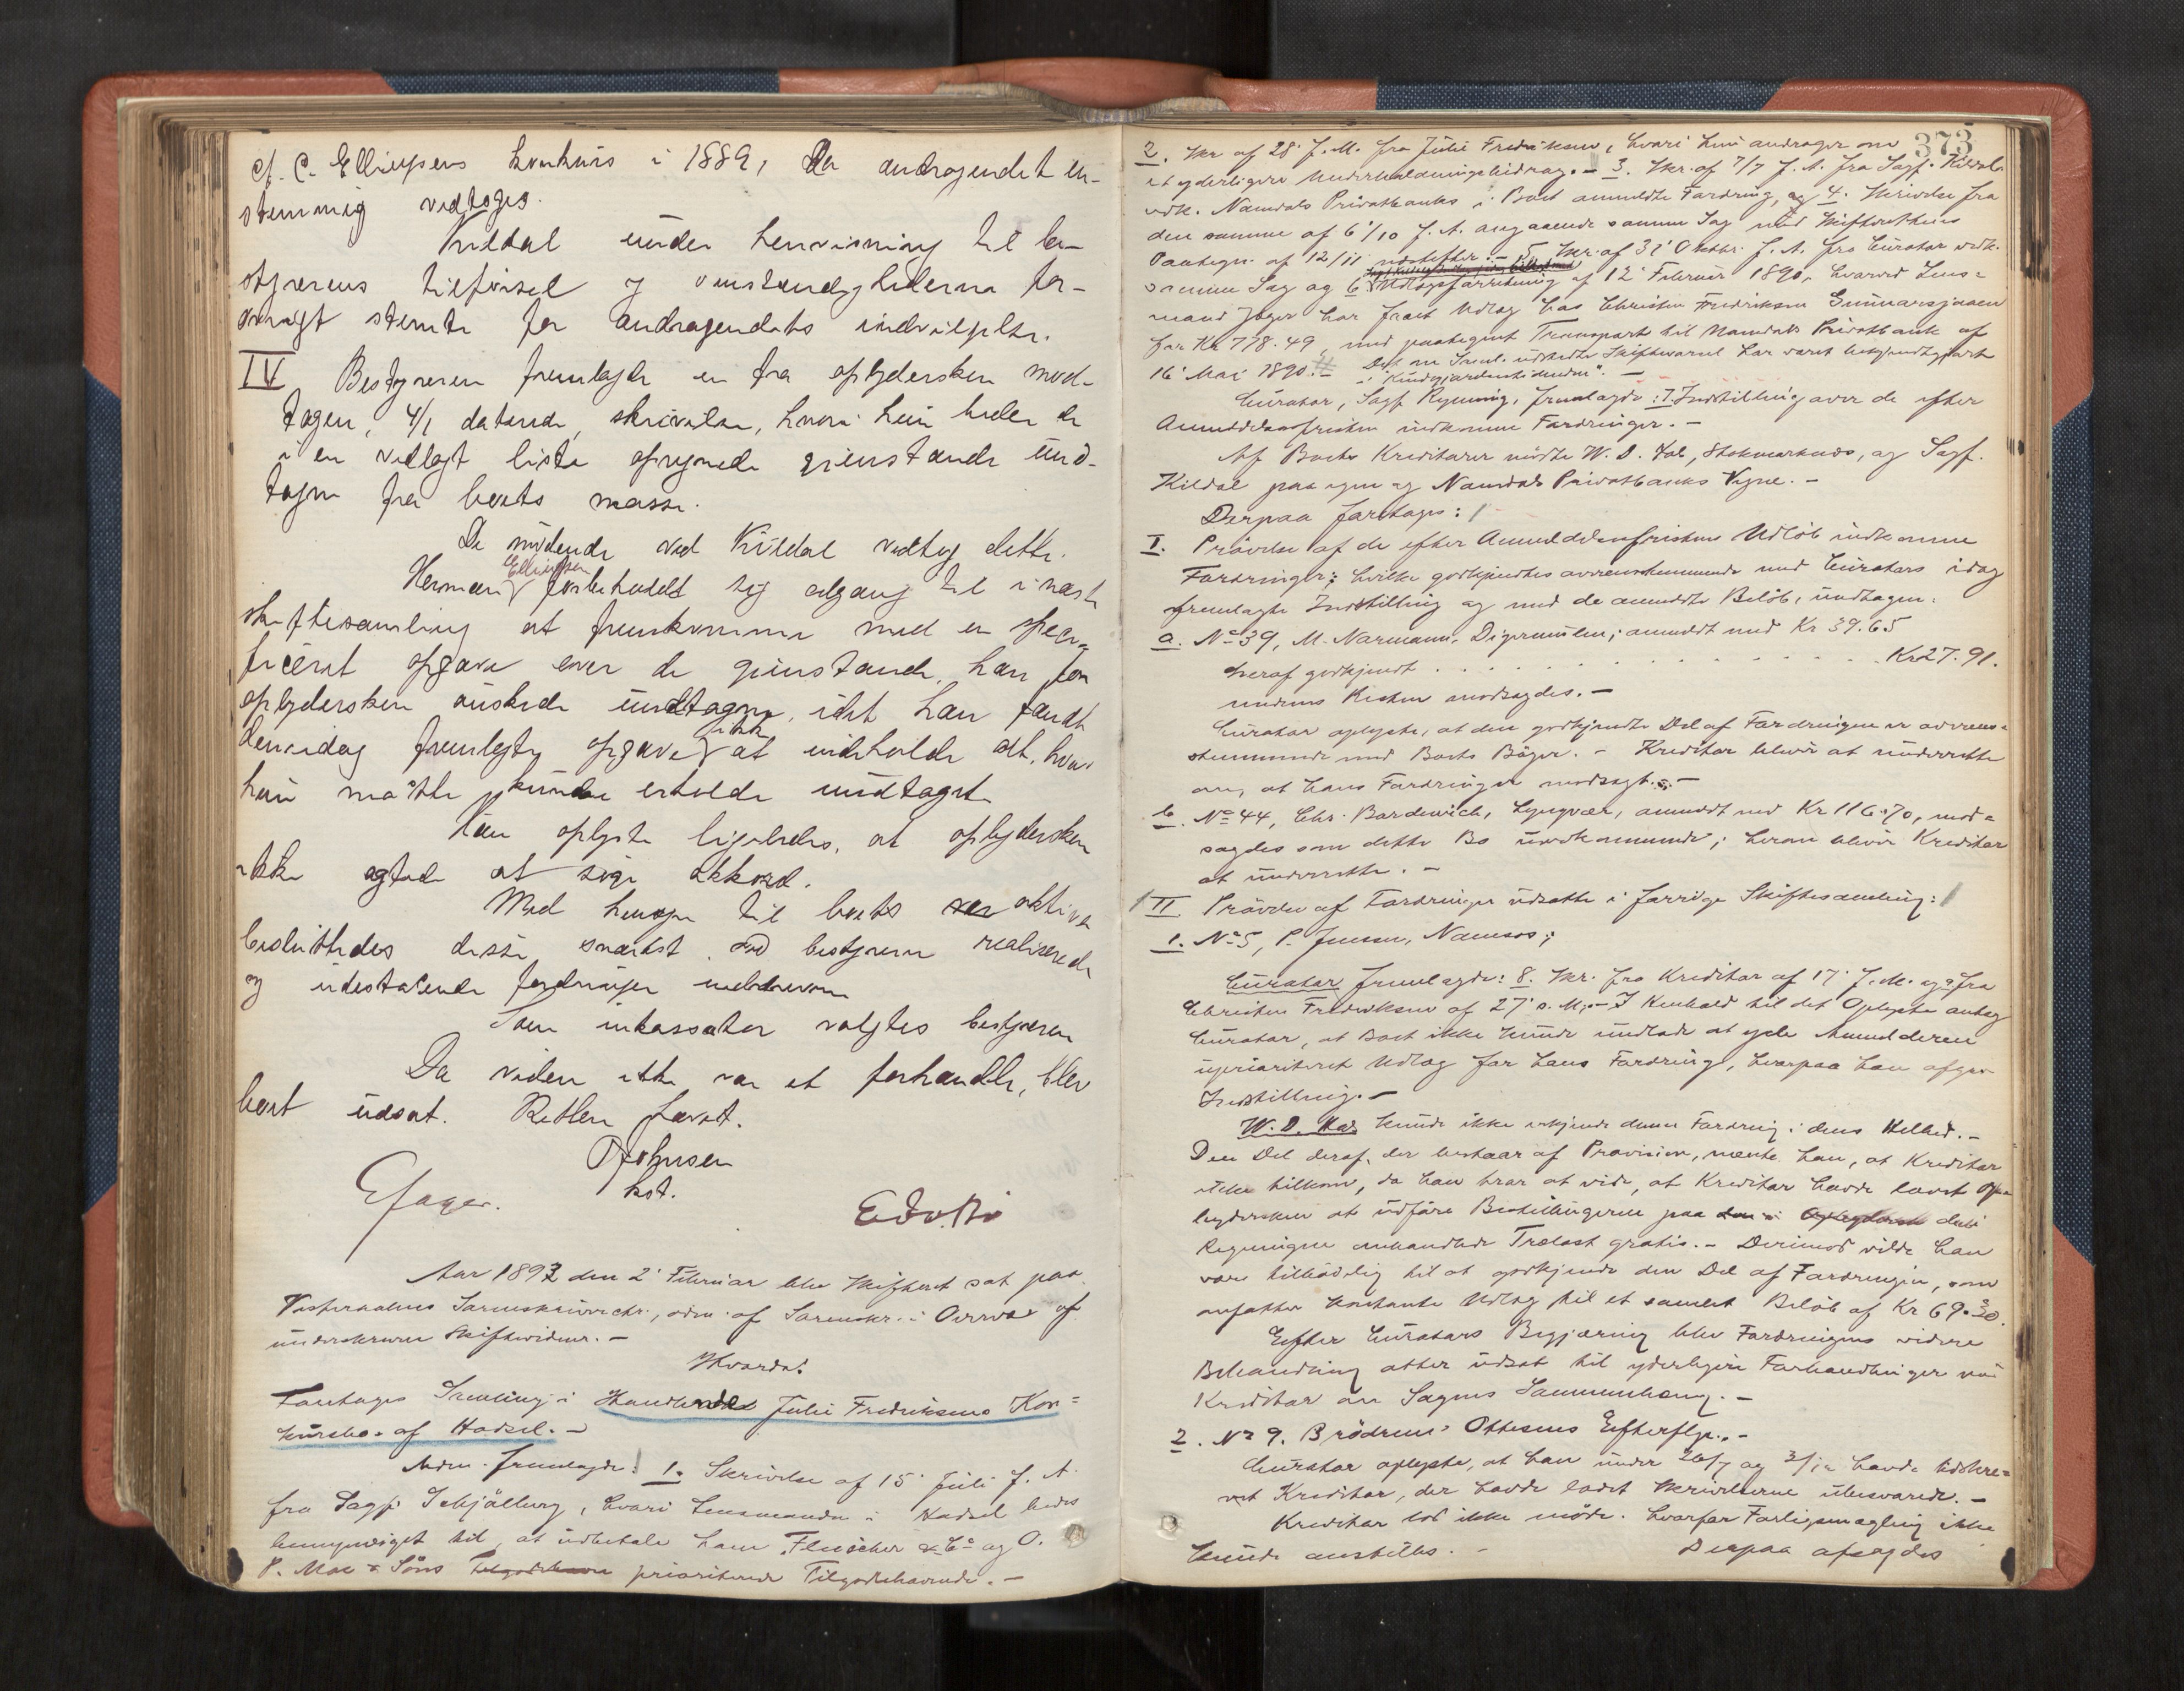 cf. C. Ellingsens konkurs i 1889, Da andragendet en-
stemmig vedtoges.
Kildal under henvisning til be-
styrerens tilførsel og omstændighederne for-
øvrigt stemte for andragendets indvilgelse.
IV Bestyreren fremlagde en fra oplydersken mod-
tagen, 4/1 daterede, skrivelse, hvori hun beder de
i en vedlagt liste opregnede gjenstande und-
tagne fra boets masse.
De mødende ved Kildal vedtog dette.
Herman Ellingsen forbeholdt sig adgang til i næste
skiftesamling at fremkomme med en speci-
ficeret opgave over de gjenstande, han for
oplydersken ønskede undtagne, idet han fandt
den idag fremlagte opgave ikke at indeholde alt, hvad
hun måtte kunde erholde undtaget.
Han oplyste ligeledes, at oplydersken
ikke agtede at søge akkord.
Med hensyn til boets aktiva
besluttedes disse snarest ved bestyreren realiserede
og udestående fordringer inddrevne
Som inkassator valgtes bestyreren
Da videre ikke var at forhandle, blev
boet udsat. Retten hævet.
Johnsen
kst.
E Jager.
Aar 1892 den 2' Februar blev Skifteret sat paa
Vesteraalens Sorenskriverktr., adm. af Sorenskr. i Overvær af
underskrevne Skiftevidner. -
Hvorda:
Foretoges Samling i Handlende Julie Fredriksens Kon=
kursbo af Hadsel. -
Adm. fremlagde: 1. Skrivelse af 15' Juli f. A.
fra Sagf. Schjølberg, hvori Lensmanden i Hadsel bedes
bemyndiget til at udbetale ham Fleischer & Co og O.
P. Moe & Søns prioriterede Tilgodehavende. -
373
2. Skr. af 28' f. M. fra Julie Fredriksen, hvori hun andrager om
et yderligere Underholdningsbidrag. - 3. Skr. af 7/7 f. A. fra Sagf. Kildal
vedk. Namdals Privatbanks i Boet anmeldte Fordring, og 4. Skrivelse fra
den samme af 6'/10 f. A. angaaende samme Sag med Skifterettens
Paategn. af 12/11 . - 5. Skr. af 31' Oktbr. f. A. fra Curator vedk.
samme Sag og 6. Udlægsforretning af 12' Februar 1890, hvorved Lens=
mand Jäger har gjort Udlæg hos Christen Fredriksen
for Kr 778.49, med paategnet Transport til Namdals Privatbank af
16' Mai 1890. - Det udstedte Skiftevarsel har været bekjendtgjort
i "Kundgjørelsestidende". -
Curator, Sagf. Rynning, fremlagde: 7. Indstilling over de efter
Anmeldelsesfristen indkomne Fordringer. -
Af Boets Kreditorer mødte W. D. Hals, Stokmarknæs, og Sagf.
Kildal paa egne og Namdals Privatbanks Vegne. -
Derpaa foretoges:
I. Prøvelse af de efter Anmeldelsesfristens Udløb indkomne
Fordringer; hvilke godkjendtes overensstemmende med Curators idag
fremlagte Indstilling og med de anmeldte Beløb, undtagen:
a. No 39, M. Normann, Digermulen; anmeldt med Kr 39.65
heraf godkjendt . . . . . . Kr 27.91.
medens Resten modsagdes. -
Curator oplyste, at den godkjendte Del af Fordringen er overens=
stemmende med Boets Bøger. - Kreditor bliver at underrette
om, at hans Fordring er modsagt. -
b. No 44, Chr. Bordewich, Lyngvær, anmeldt med Kr 116.70, mod=
sagdes som dette Bo uvedkommende; herom bliver Kreditor
at underrette. -
II Prøvelse af Fordringer udsatte i forrige Skiftesamling:
1. No 5, P. Jensen, Namsos;
Curator fremlagde: 8. Skr. fra Kreditor af 17' f. M. og 9 fra
Christen Fredriksen af 27' s. M. - I Henhold til det Oplyste antog
Curator, at Boet ikke kunde undlade at yde Anmelderen
uprioriteret Udlæg for hans Fordring, hvorpaa han afgav
Indstilling. -
W. D. Hals kunde ikke erkjende denne Fordring i dens Helhed. -
Den Del deraf, der bestaar af Provision, mente han, at Kreditor
ikke tilkom, da han tror at vide, at Kreditor havde lovet Op=
lydersken at udføre Bestillingerne paa den i
Regningen omhandlede Trælast gratis. - Derimod vilde han
være tilbøielig til at godkjende den Del af Fordringen, som
omfatter kontante Udlæg til et samlet Beløb af Kr 69.30.
Efter Curators Begjæring blev Fordringens videre
Behandling atter udsat til yderligere Forhandlinger med
Kreditor om Sagens Sammenhæng. -
2. No 9. Brødrene Ottesens Efterflg. -
Curator oplyste, at han under 26/7 og 3/12 havde tilskre=
vet Kreditor, der havde ladet Skrivelserne ubesvarede. -
Kreditor lod ikke møde, hvorfor Forligsmægling ikke
kunde anstilles. - Derpaa afsagdes